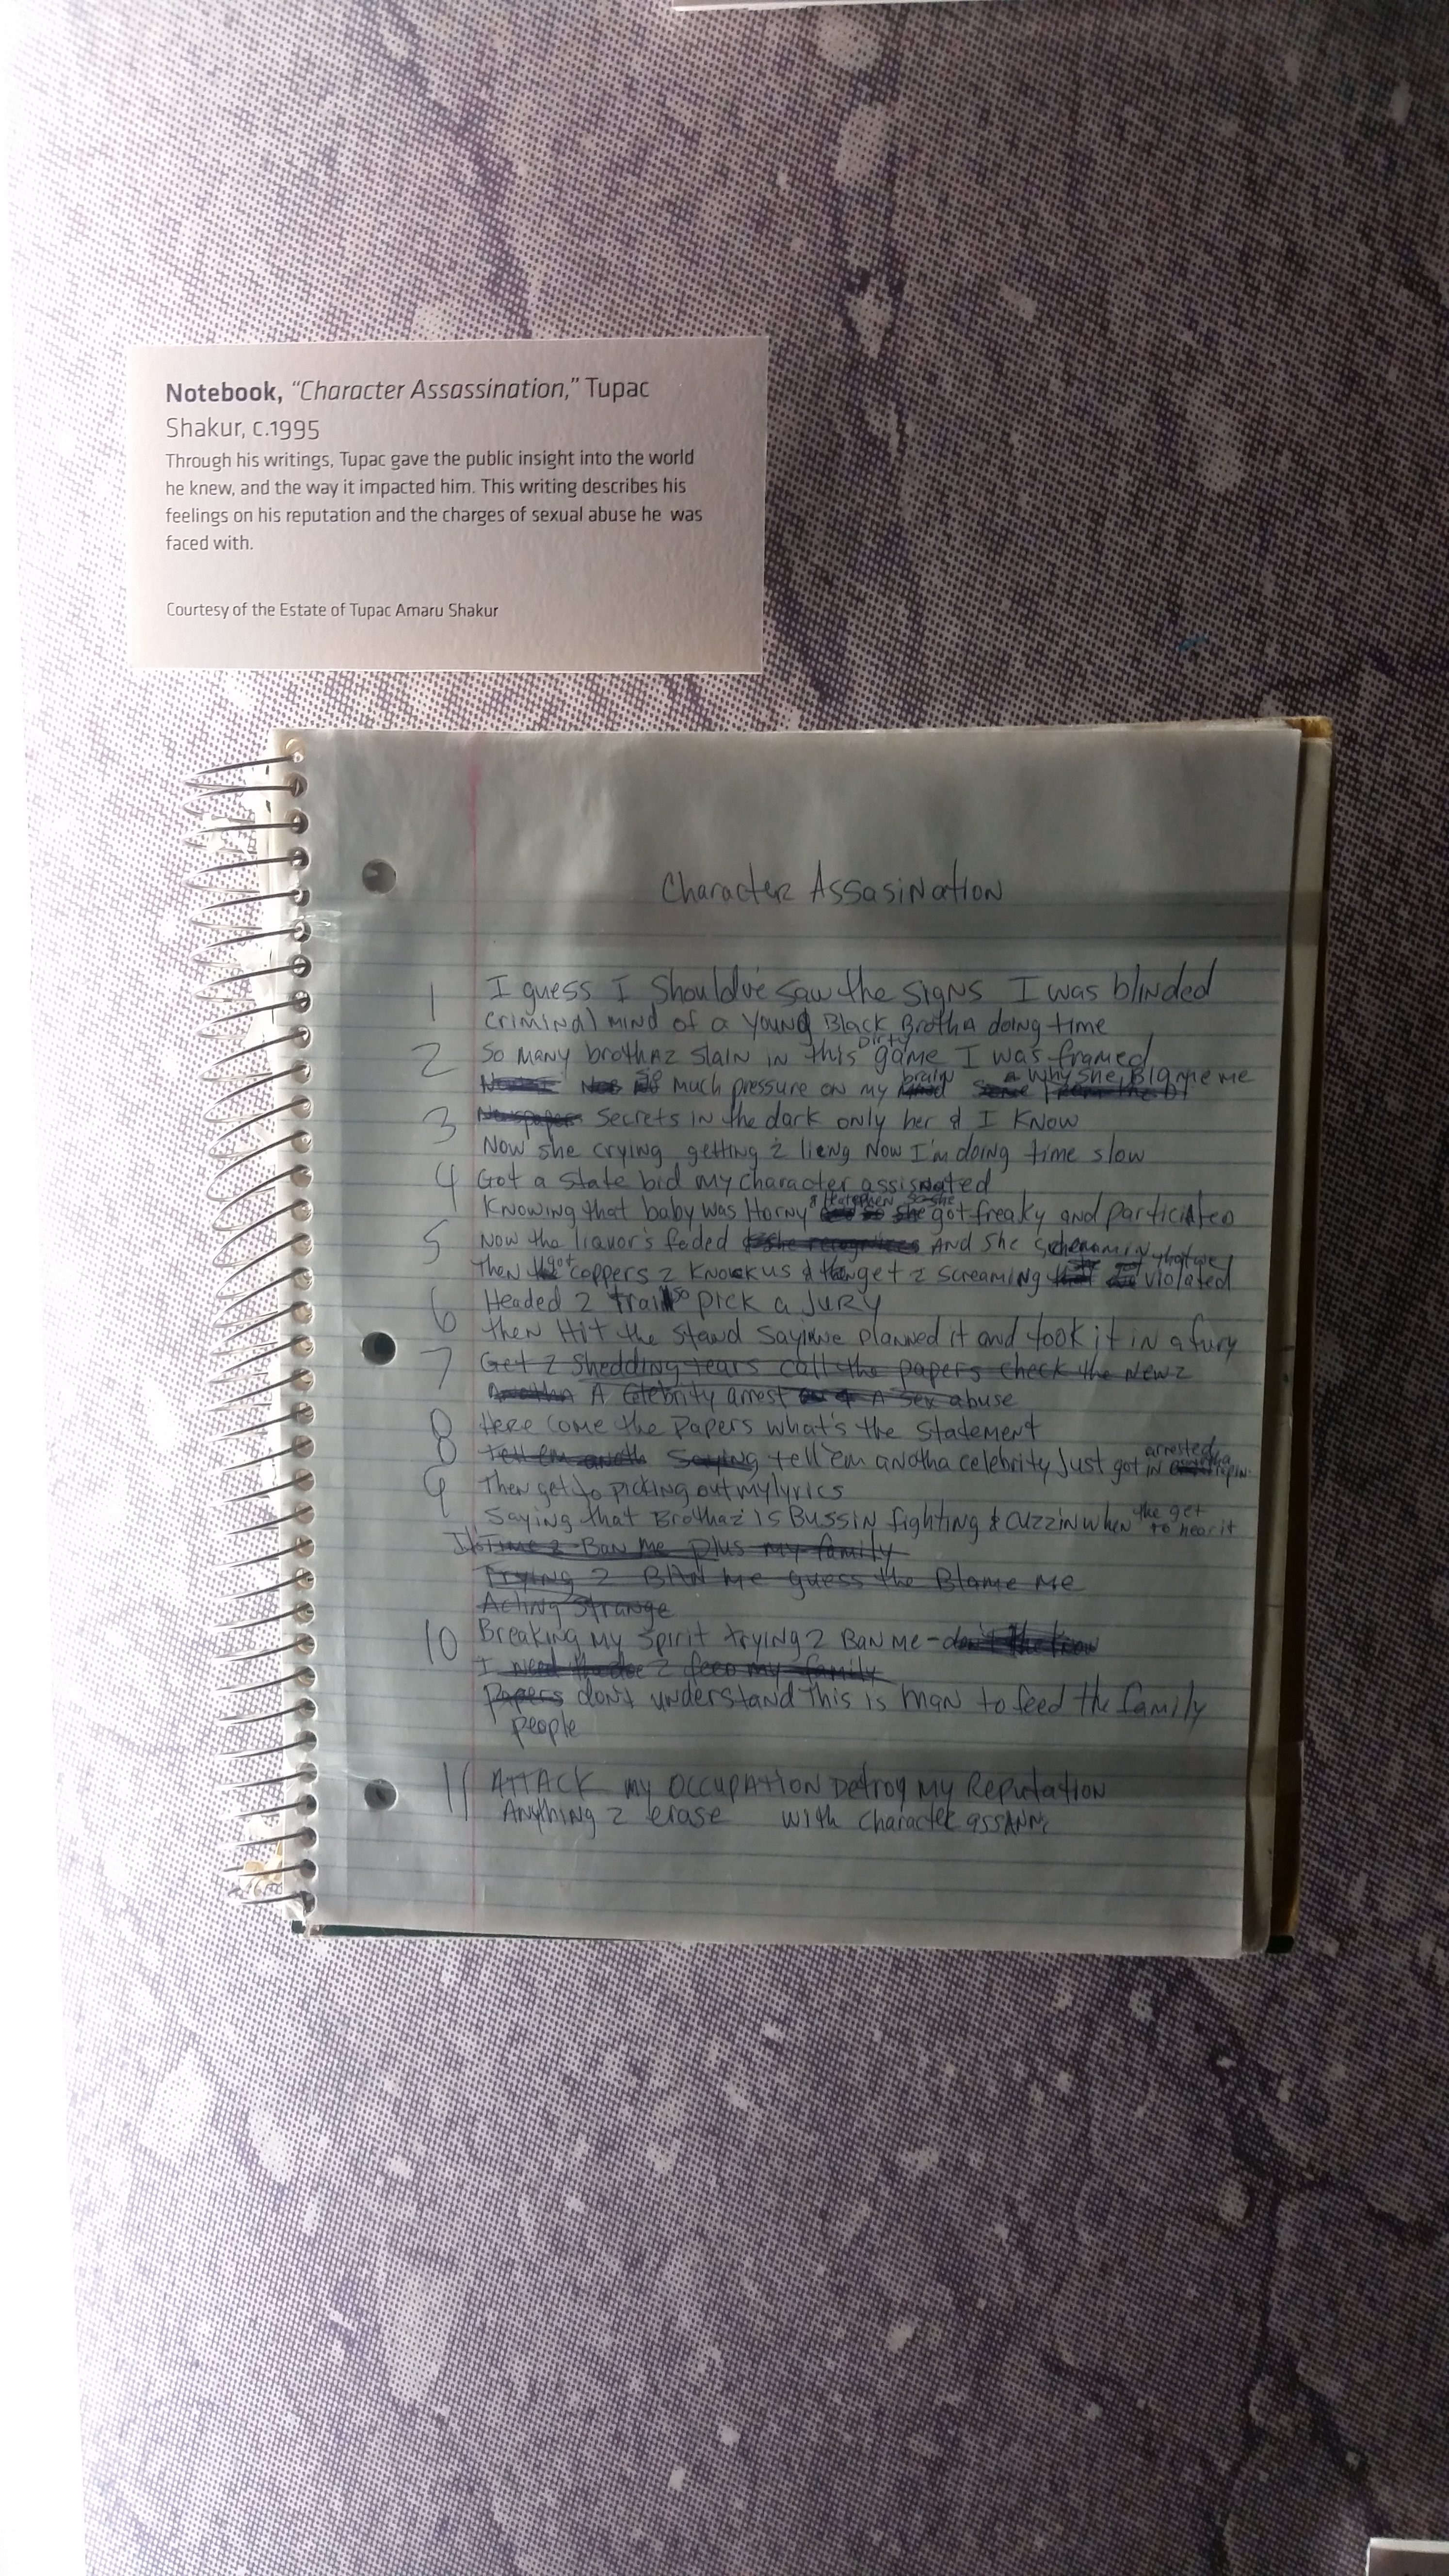 Notebook, “Character Assassination,” Tupac
Shakur, c.1995
Through his writings, Tupac gave the public insight into the world
he knew, and the way it impacted him. This writing describes his
feelings on his reputation and the charges of sexual abuse he was
faced with.
Courtesy of the Estate of Tupac Amaru Shakur
Character Assasination
1 I guess I should've saw the signs I was blinded
criminal mind of a young Black Brotha doing time
Dirty
2 So many brothaz slain in this game I was framed
brain why she Blame me
much pressure on my
3 Newspaper Secrets in the dark only her & I know
Now she crying getting 2 lieng Now I'm doing time slow
4 Got a state bid my character assisnated
so she
Knowing that baby was Horny she got freaky and participated
5 Now the liquor's faded & she recognizes And she
got that we
Then coppers 2 knock us & then get 2 screaming violated
so
6 Headed 2 trail pick a Jury
then Hit the stand saying we planned it and took it in a fury
7 Get 2 shedding tears call the papers check the Newz
Anotha A Celebrity arrest A Sex abuse
8 Here come the Papers what's the statement
arrested
8 Tell em anotha Saying tell 'em anotha celebrity Just got in
9 Then get to picking out my lyrics
the get
Saying that Brothaz is Bussin fighting & cuzzin when to hear it
Time 2 Ban me plus my family
Trying 2 BAN me guess the Blame me
Acting Strange
10 Breaking my spirit trying 2 Ban me - don't the know
I need the doe 2 feed my family
Papers don't understand this is man to feed the family
people
11 ATTACK my Occupation Detroy my Reputation
Anything 2 erase with character